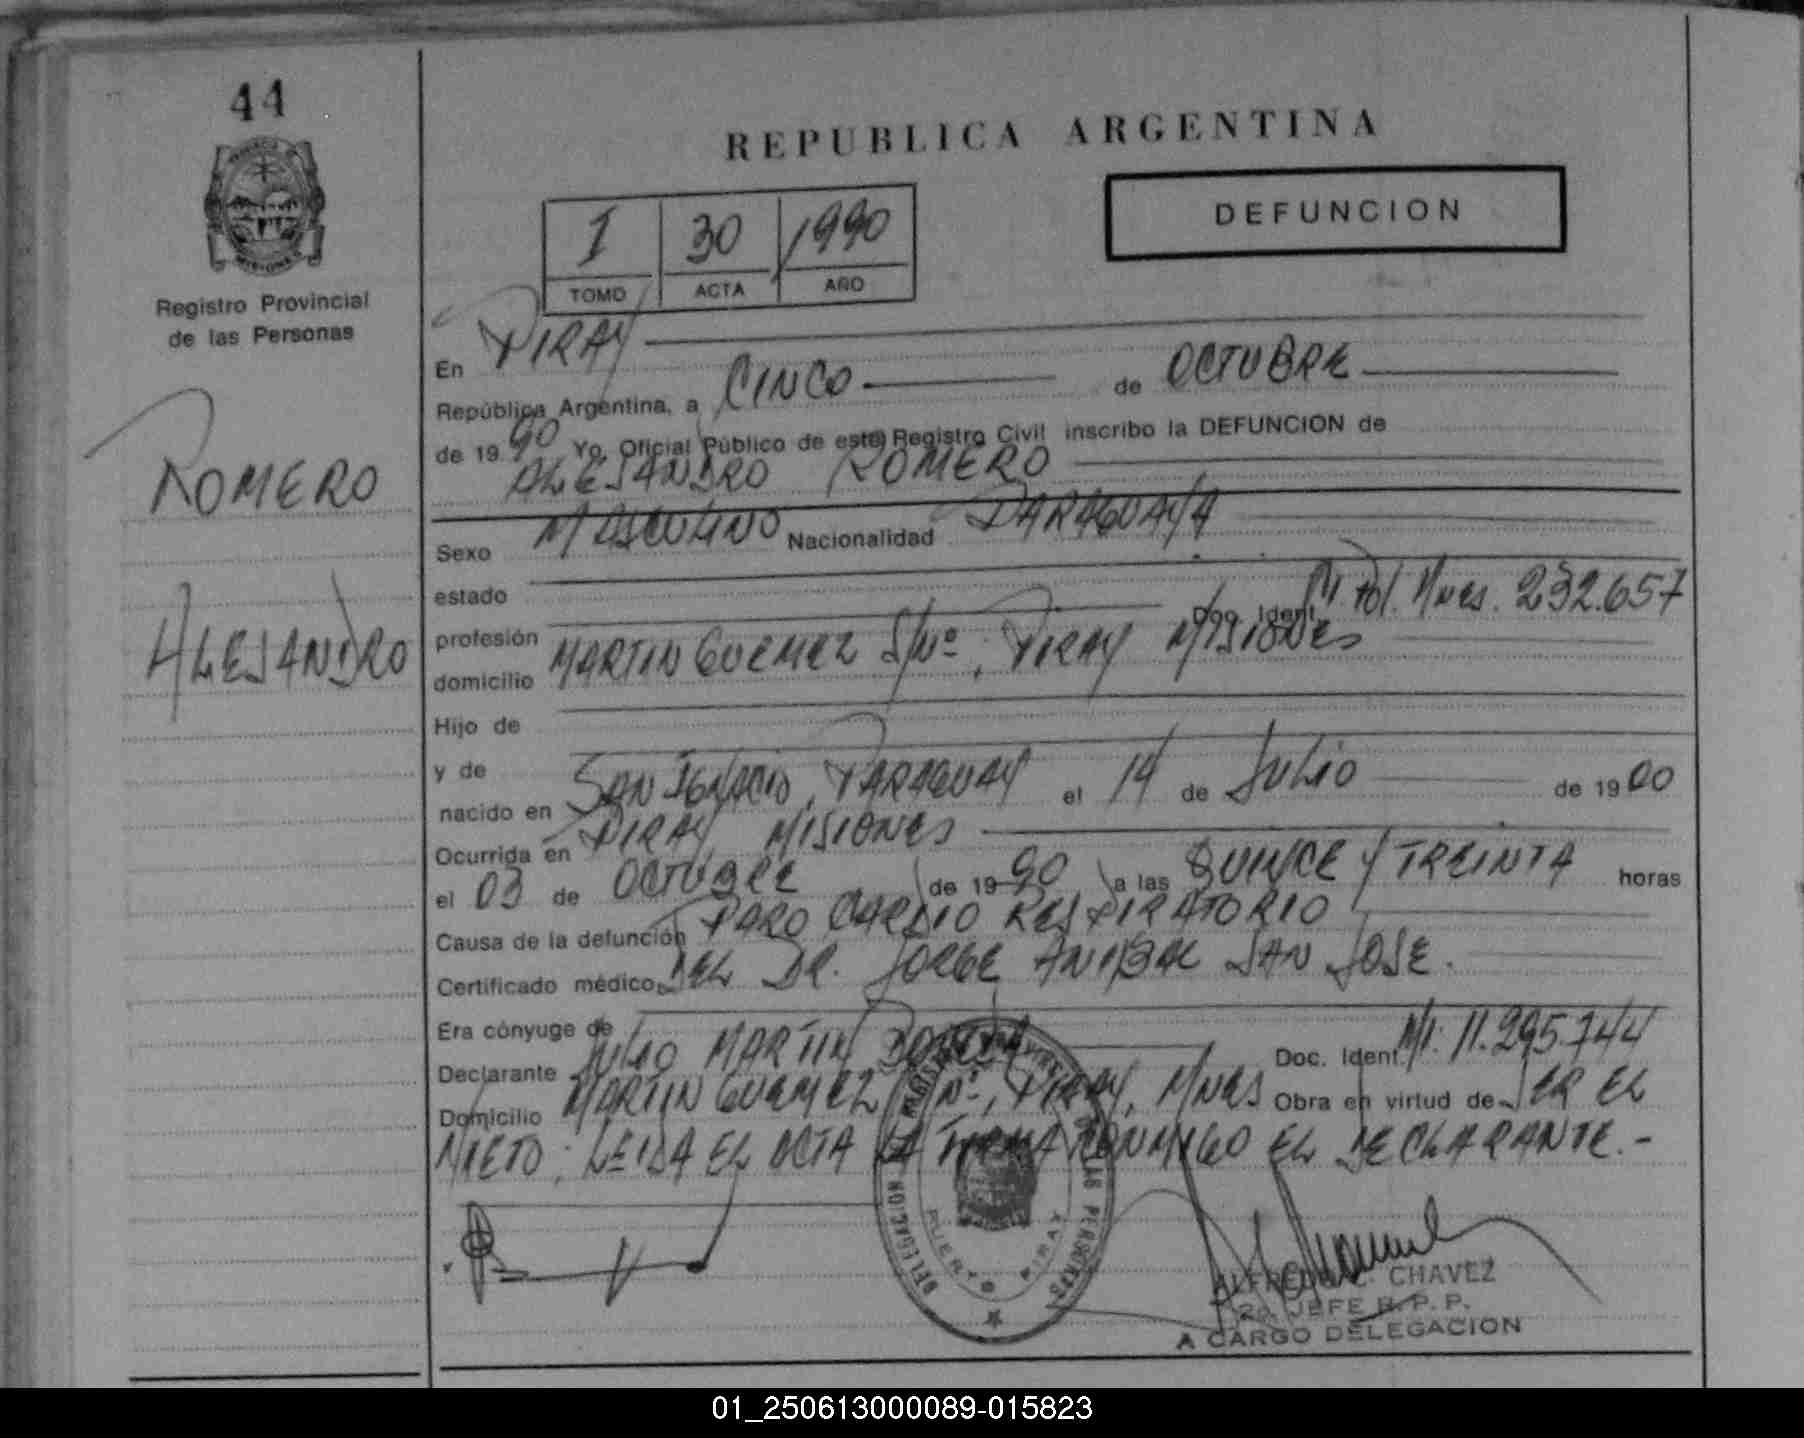 44
REPUBLICA ARGENTINA
DEFUNCION
I 30 1990
TOMO ACTA AÑO
Registro Provincial
de las Personas
ROMERO
ALEJANDRO
En PIRAY
República Argentina, a CINCO de OCTUBRE
de 1990 Yo, Oficial Público de este Registro Civil inscribo la DEFUNCION de
ALEJANDRO ROMERO
Sexo MASCULINO Nacionalidad PARAGUAYA
estado
profesión Doc. Ident. Pol. Mnes. 232.657
domicilio MARTIN GUEMEZ S/Nº, PIRAY MISIONES
Hijo de
y de
nacido en SAN IGNACIO, PARAGUAY el 14 de JULIO de 1900
Ocurrida en PIRAY MISIONES
el 03 de OCTUBRE de 1990 a las QUINCE Y TREINTA horas
Causa de la defunción PARO CARDIO RESPIRATORIO
Certificado médico DEL DR. JORGE ANIBAL SAN JOSE.
Era cónyuge de
Declarante JULIO MARTIN Doc. Ident. M.I. 11.295.744
Domicilio MARTIN GUEMEZ S/Nº, PIRAY, MNES Obra en virtud de SER EL
NIETO; LEIDA EL ACTA LA FIRMA CONMIGO EL DECLARANTE.-
DELEGACION
DE LAS PERSONAS
PUERTO PIRAY
ALFREDO C. CHAVEZ
2o. JEFE R.P.P.
A CARGO DELEGACION
01_250613000089-015823